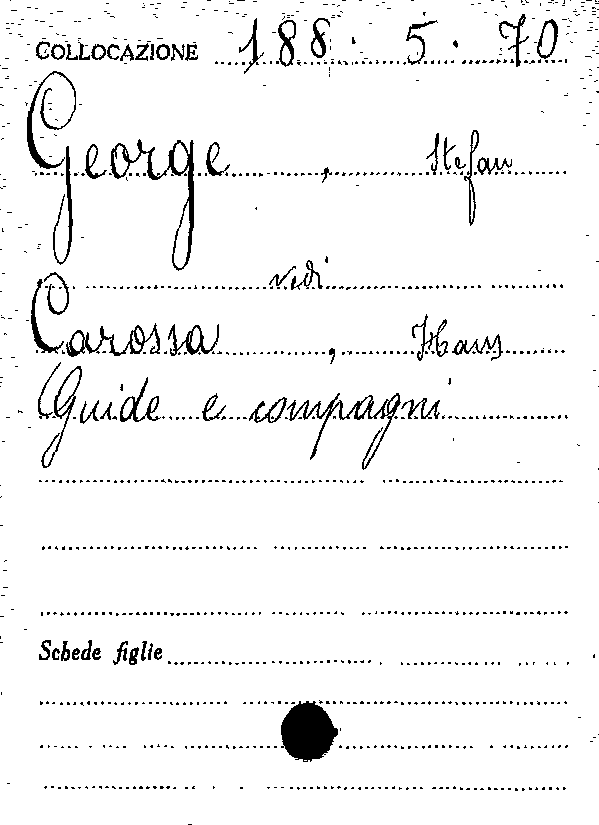 COLLOCAZIONE 188. 5. 70
George, Stefan
vedi
Carossa, Hans
Guide e compagni
Schede figlie